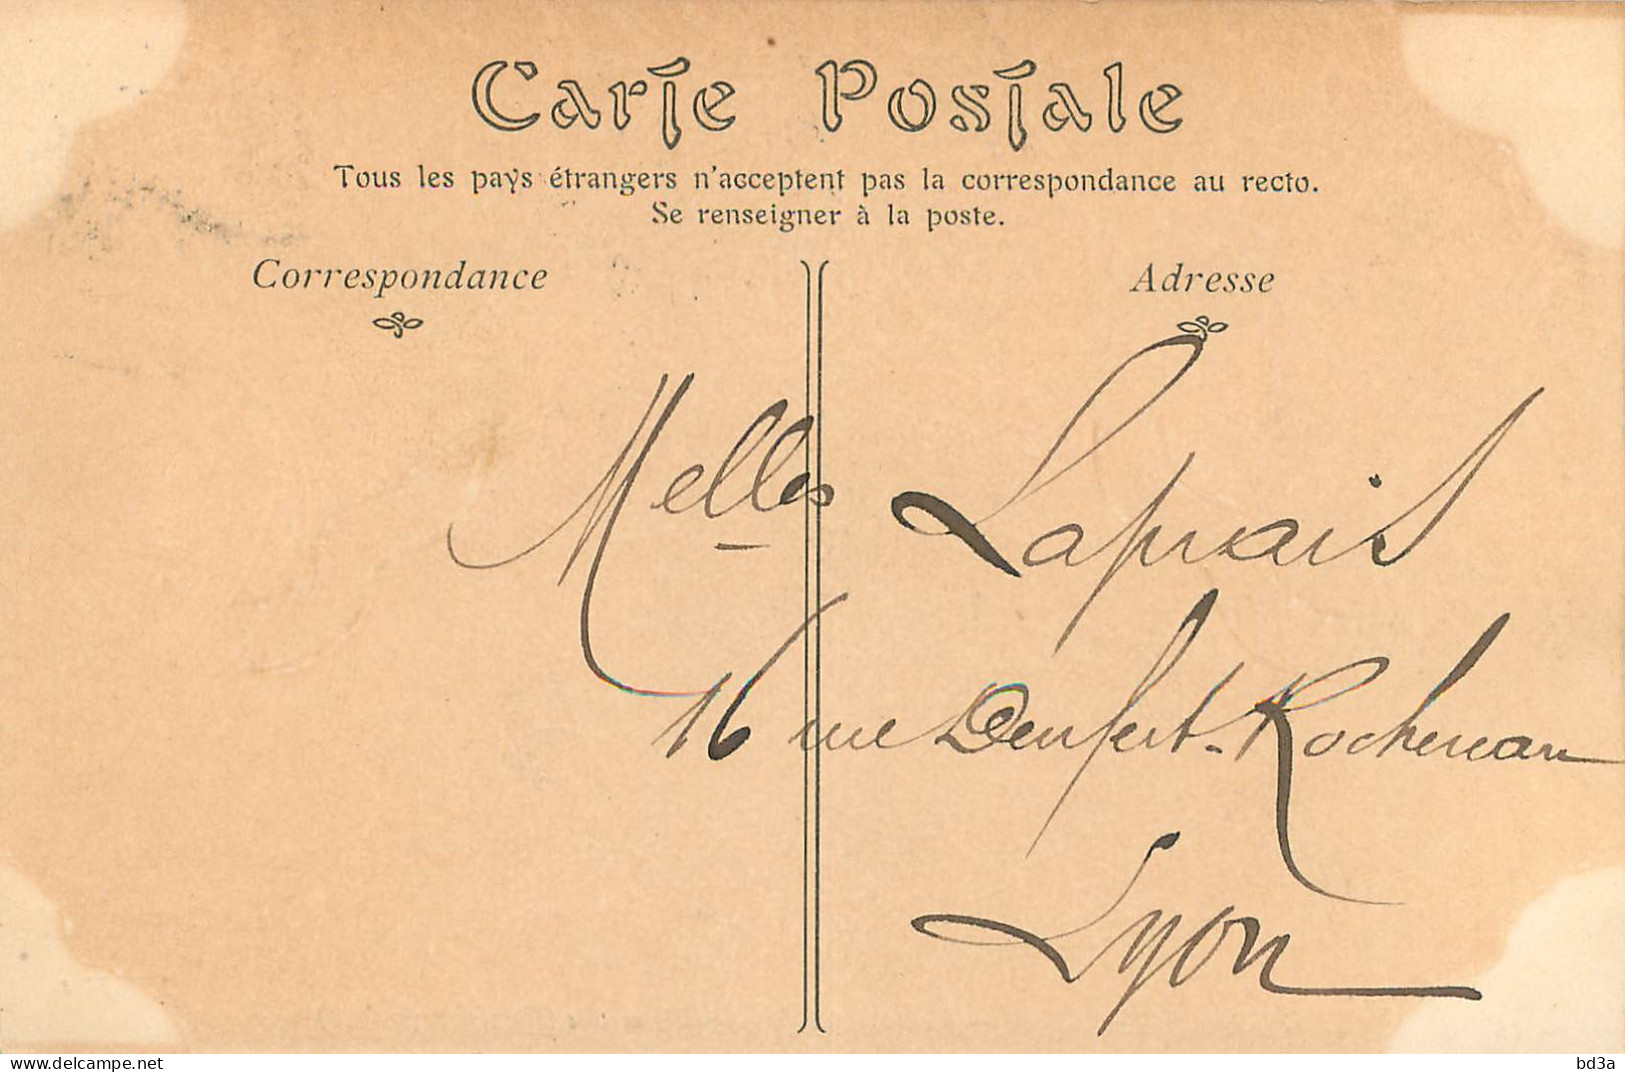 Carte Postale
Tous les pays étrangers n'acceptent pas la correspondance au recto.
Se renseigner à la poste.
Correspondance
Adresse
Melles Laprais
16 rue Denfert-Rochereau
Lyon
delcampe.net
bd3a